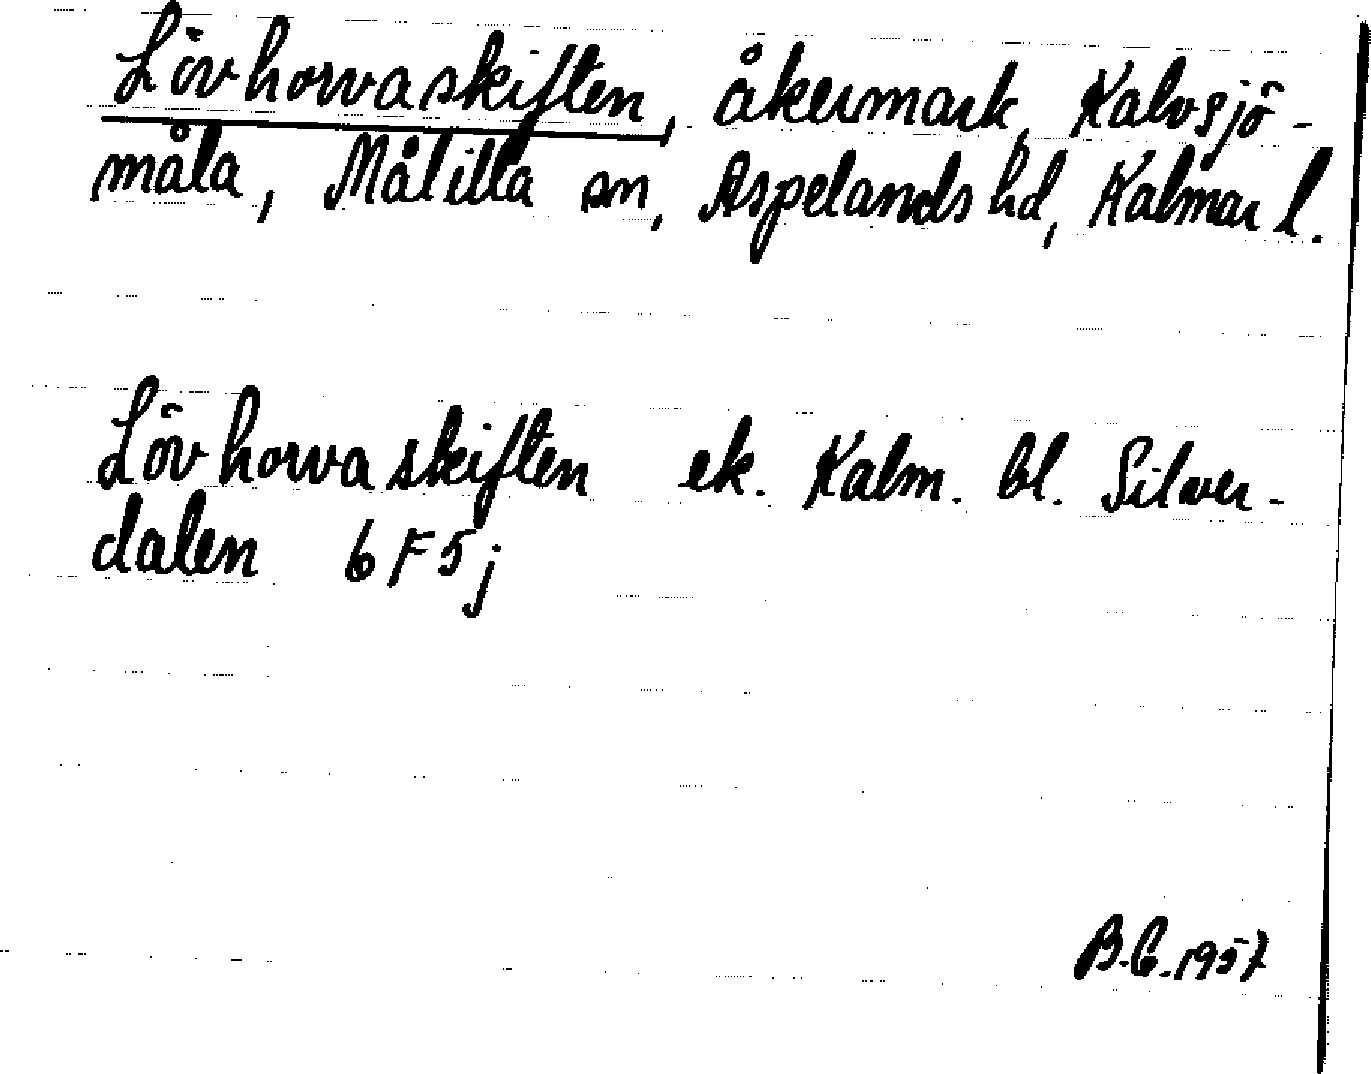 Lövhorvaskiften, åkermark, Kalvsjö-
måla, Målilla sn, Aspelands hd, Kalmar l.
Lövhorvaskiften ek. Kalm. bl. Silver-
dalen 6F5j
B.C. 1957